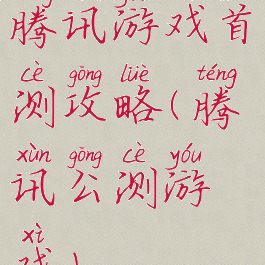 腾讯游戏首
cè gōng lüè téng
测攻略(腾
xùn gōng cè yóu
讯公测游
xì
戏)